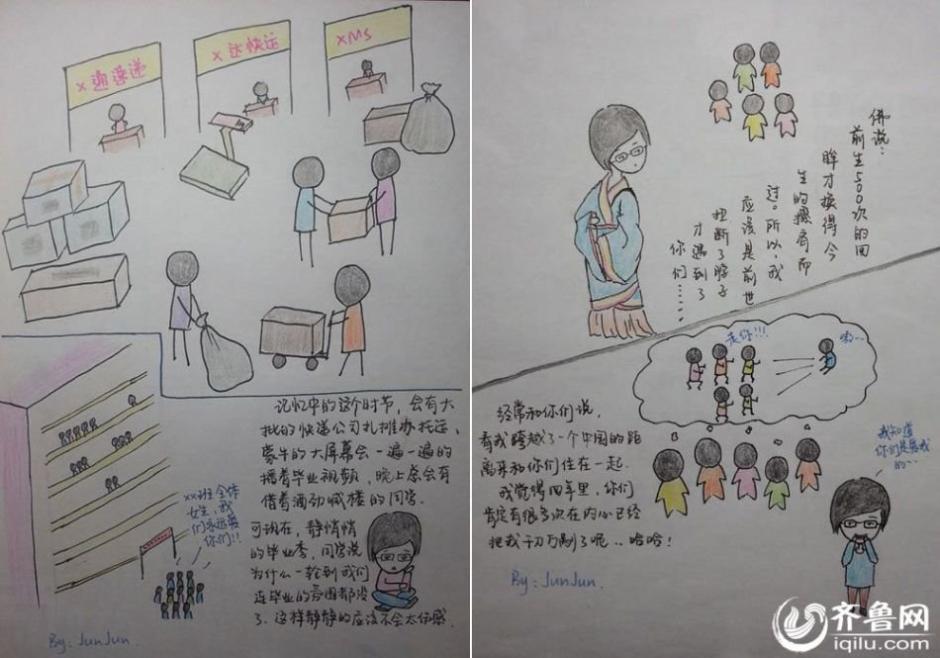 x通速递
x达快运
XMS
记忆中的这个时节，会有大
批的快递公司扎堆办托运、
蒙牛的大屏幕会一遍一遍的
播着毕业视频，晚上总会有
借着酒劲喊楼的同学.
可现在，静悄悄
的毕业季，同学说
为什么一轮到我们
连毕业的氛围都没
了.这样静静的应该不会太伤感.
xx班全体
女生，我
们永远爱
你们!!
By: JunJun.
佛说：
前生500次的回
眸才换得今
生的擦肩而
过。所以，我
应该是前世
扭断了脖子
才遇到了
你们……
走你!!!
经常和你们说，
看我跨越了一个中国的距
离来和你们住在一起.
我觉得四年里，你们
肯定有很多次在内心已经
把我千刀万剐了呢..哈哈!
我知道
你们是爱我
的...
By: JunJun.
齐鲁网
iqilu.com